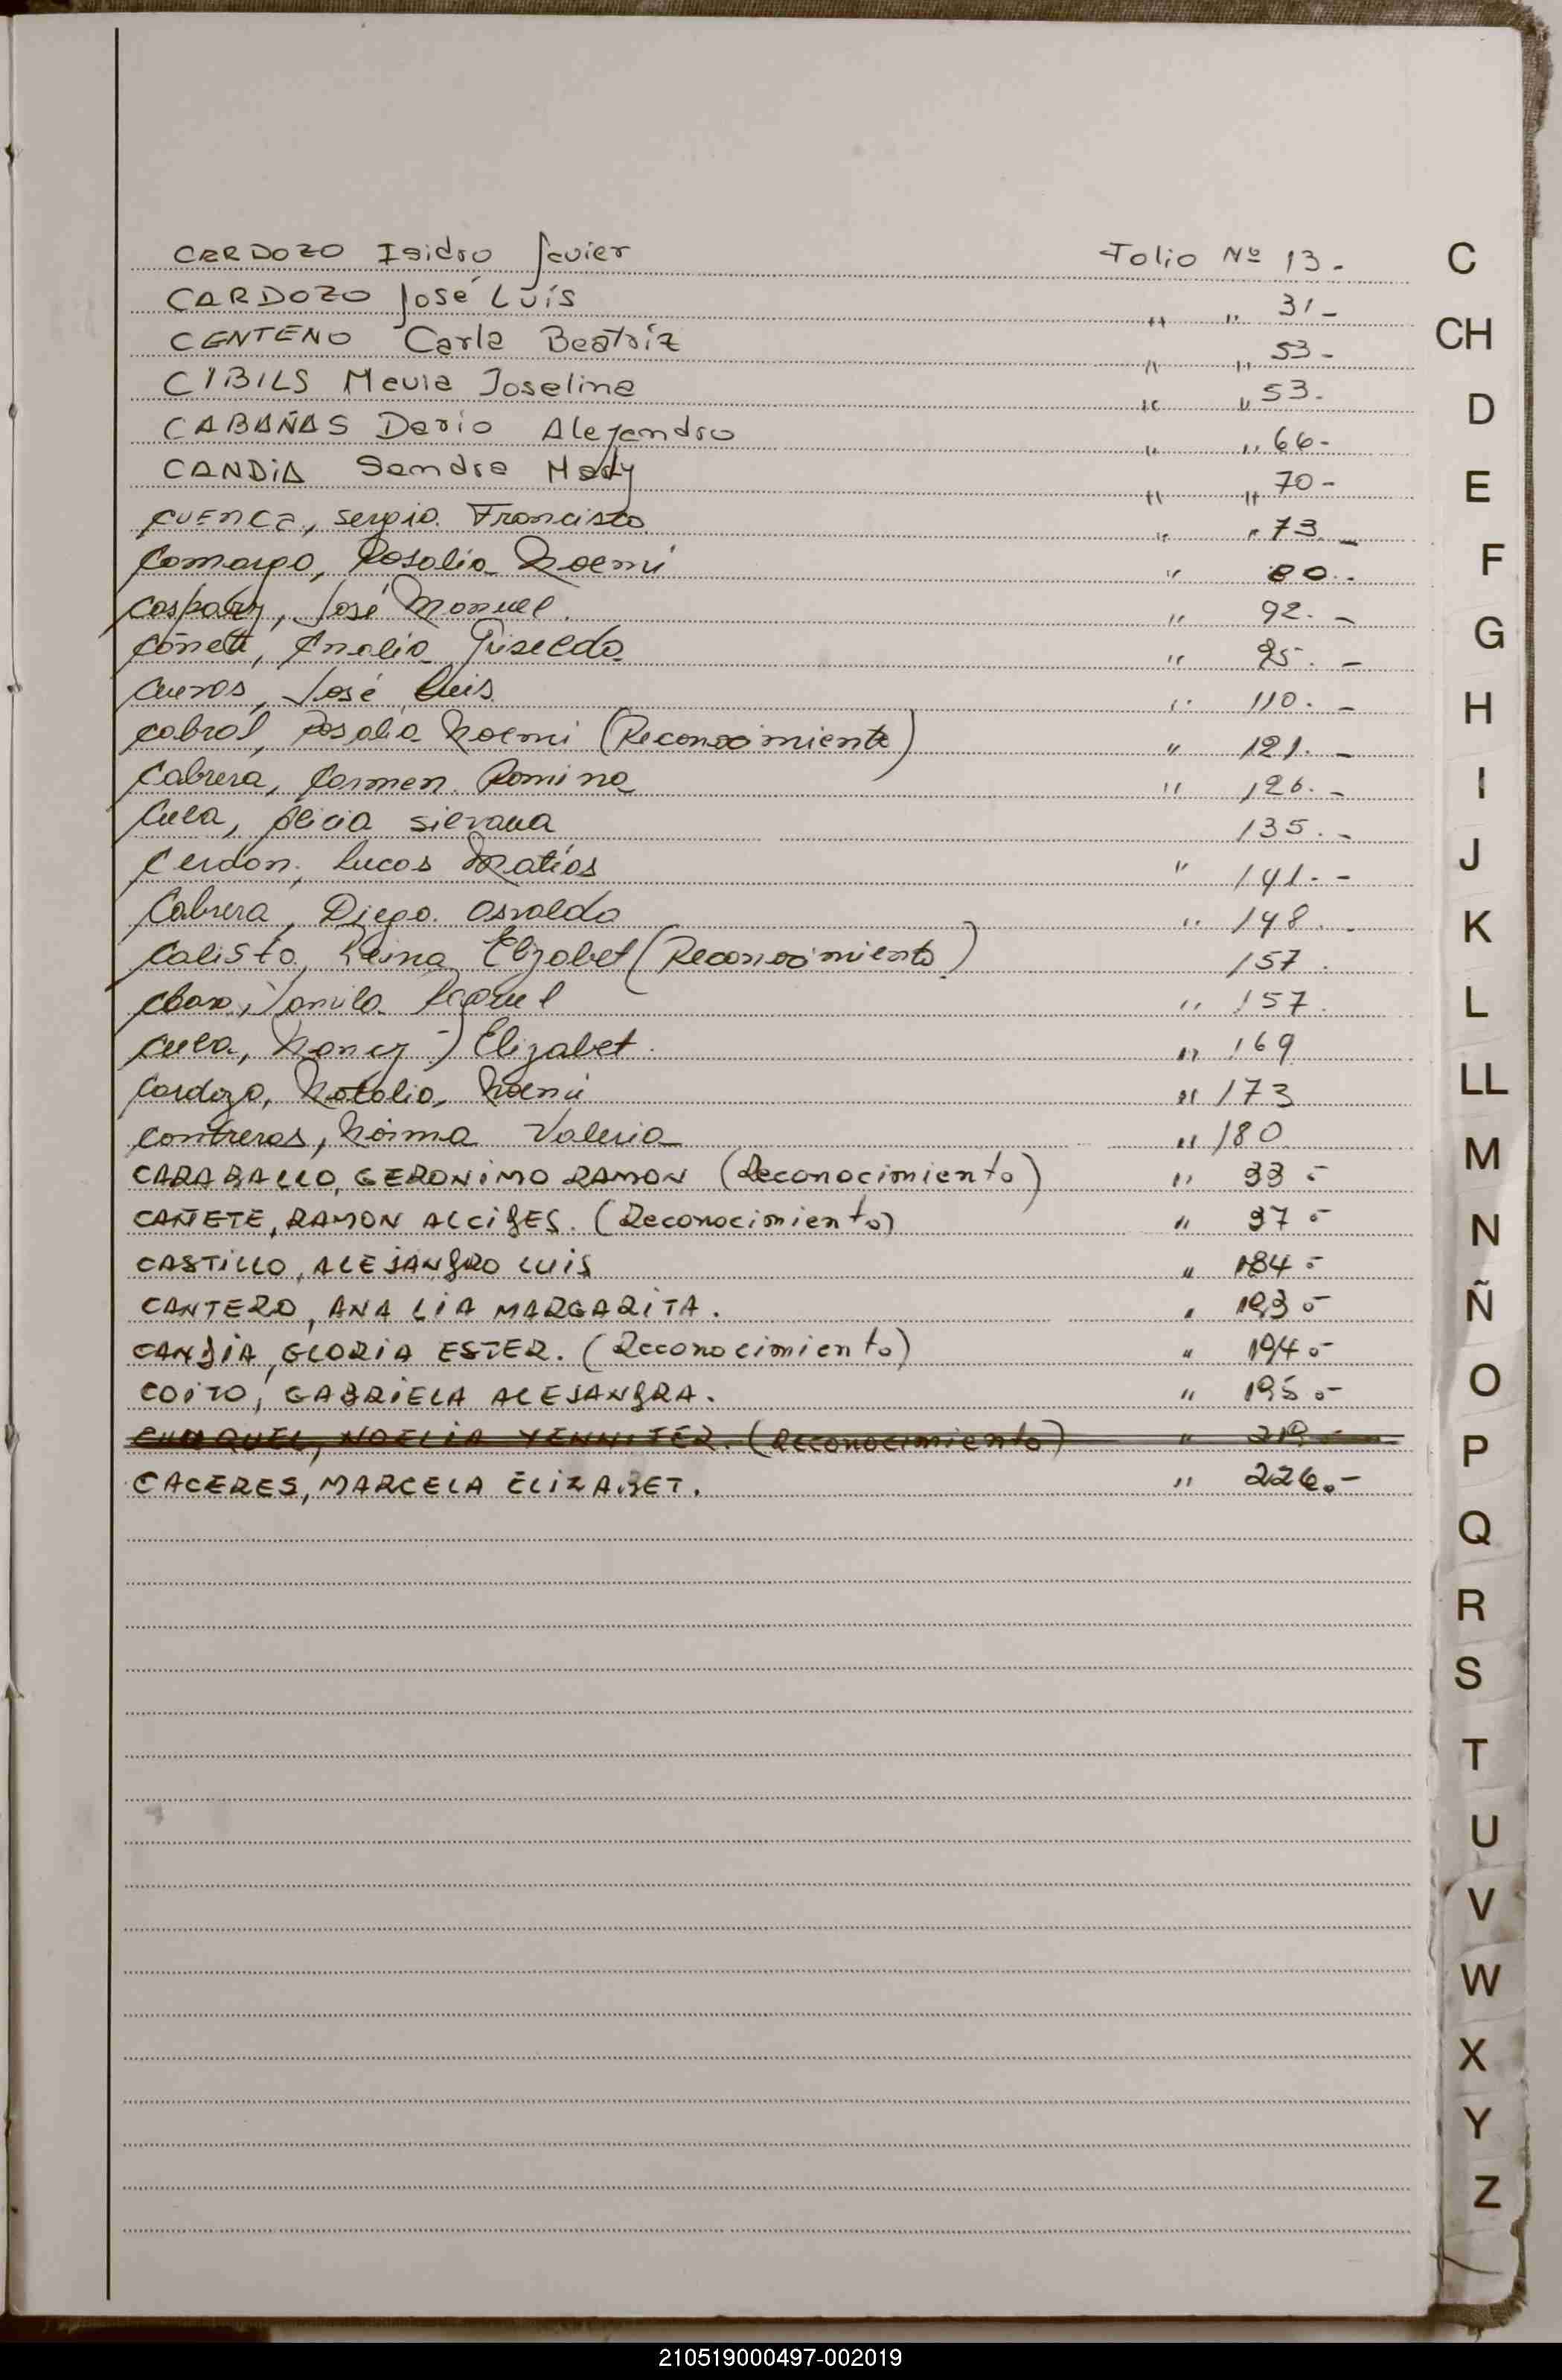 CARDOZO Isidro Javier Folio Nº 13.-
CARDOZO José Luís " " 31-
CENTENO Carla Beatríz " " 53-
CIBILS Maria Joselina " " 53.
CABAÑAS Dario Alejandro " " 66-
CANDIA Sandra Mady " " 70-
CUENCA, Sergio. Francisco " " 73.-
Camargo, Rosalia Noemi " 80.-
Caspary, José Manuel. " 92.-
Cañete, Analia Griselda " 95.-
Cueros, José Luis " 110.-
Cabral, Rosalia Noemi (Reconocimiento) " 121.-
Cabrera, Carmen. Romina " 126.-
Cula, Alicia Silvana 135.-
Cerdan, Lucas Matías " 141.-
Cabrera, Diego. Osvaldo " 148.-
Calisto, Reina Elizabet (Reconocimiento) 157.
Yamila Raquel " 157.
Cula, Nancy Elizabet. " 169
Cardozo, Natalia, Noemi " 173
Contreras, Norma Valeria " 180
CARABALLO, GERONIMO RAMON (Reconocimiento) " 33.-
CAÑETE, RAMON ALCIDES. (Reconocimiento) " 37.-
CASTILLO, ALEJANDRO LUIS " 184.-
CANTERO, ANA LIA MARGARITA. " 193.-
CANDIA, GLORIA ESTER. (Reconocimiento) " 194.-
COITO, GABRIELA ALEJANDRA. " 195.-
NOELIA YENNIFER. (Reconocimiento) " 219.-
CACERES, MARCELA ELIZABET. " 226.-
C
CH
D
E
F
G
H
I
J
K
L
LL
M
N
Ñ
O
P
Q
R
S
T
U
V
W
X
Y
Z
210519000497-002019